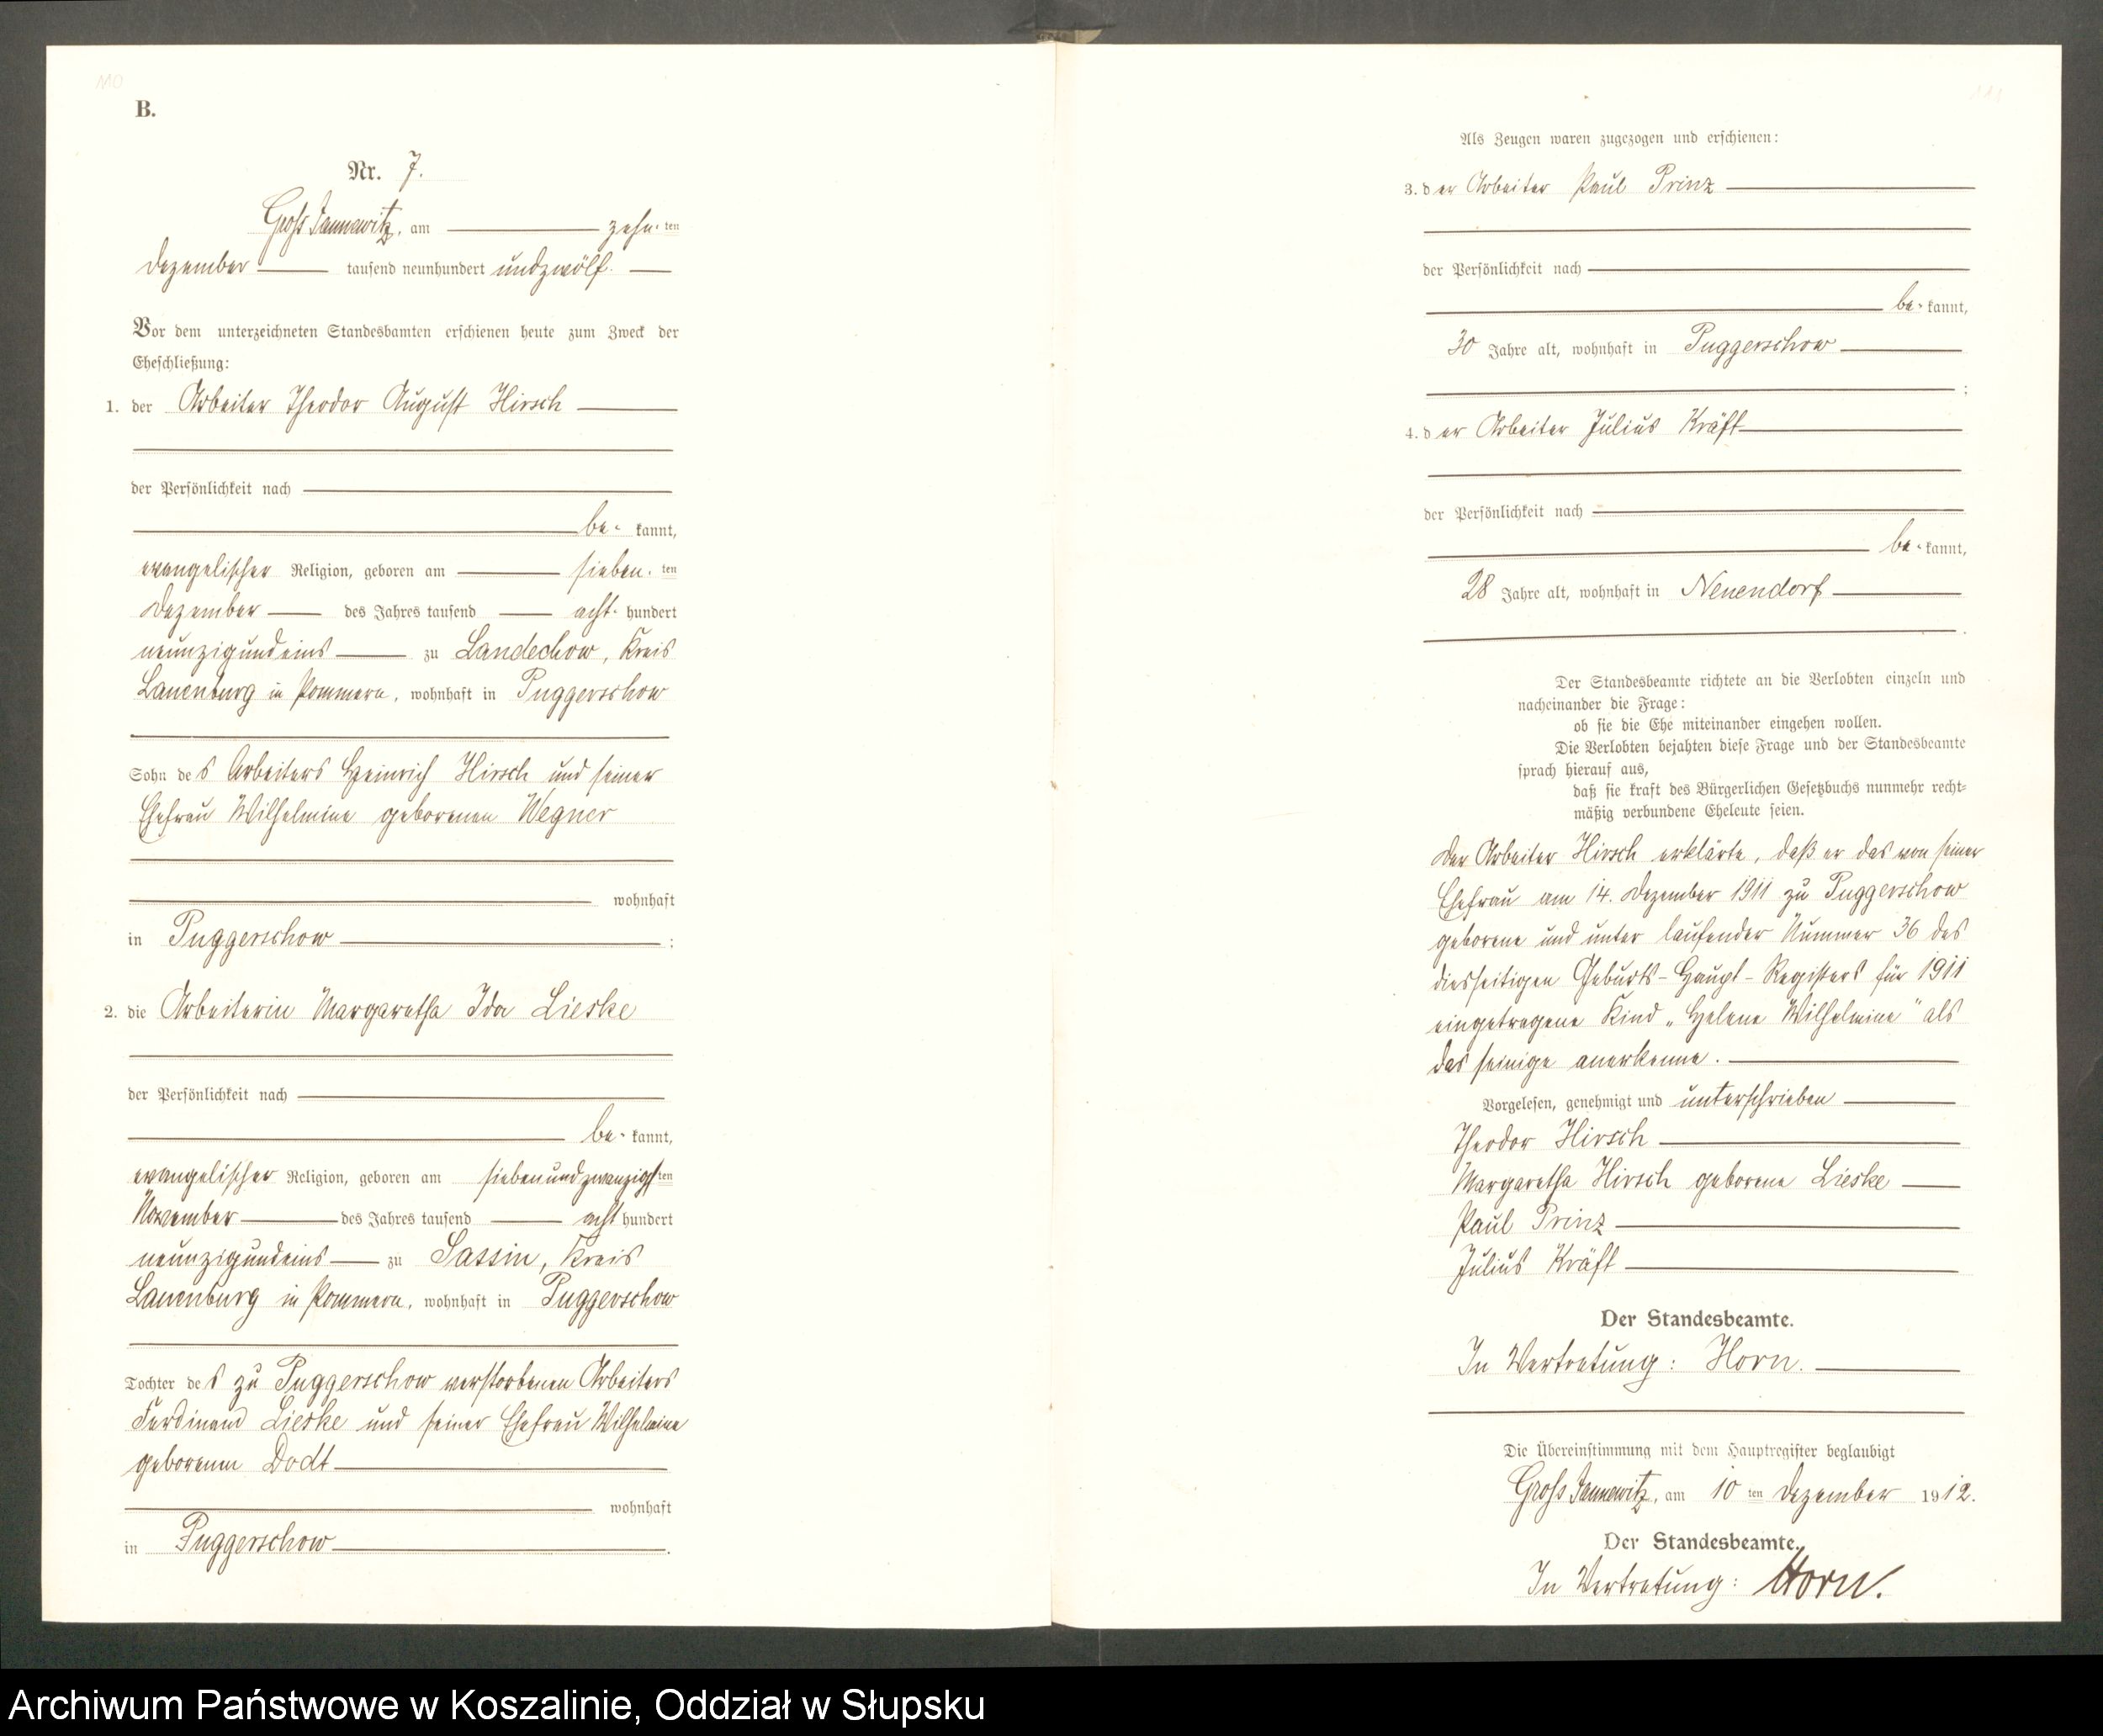 110
B.
Nr. 7.
Groß Jannewitz, am zehn-ten
Dezember tausend neunhundert undzwölf.
Vor dem unterzeichneten Standesbamten erschienen heute zum Zweck der
Eheschließung:
1. der Arbeiter Theodor August Hirsch
der Persönlichkeit nach
be- kannt,
evangelischer Religion, geboren am sieben-ten
Dezember des Jahres tausend acht- hundert
neunzigundeins zu Landechow, Kreis
Lauenburg in Pommern, wohnhaft in Puggerschow
Sohn des Arbeiters Heinrich Hirsch und seiner
Ehefrau Wilhelmine geborenen Wegner
wohnhaft
in Puggerschow ;
2. die Arbeiterin Margaretha Ida Lieske
der Persönlichkeit nach
be- kannt,
evangelischer Religion, geboren am siebenundzwanzigsten
November des Jahres tausend acht hundert
neunzigundeins zu Sassin, Kreis
Lauenburg in Pommern, wohnhaft in Puggerschow
Tochter des zu Puggerschow verstorbenen Arbeiters
Ferdinand Lieske und seiner Ehefrau Wilhelmine
geborenen Dodt
wohnhaft
in Puggerschow .
111
Als Zeugen waren zugezogen und erschienen:
3. der Arbeiter Paul Prinz
der Persönlichkeit nach
be- kannt,
30 Jahre alt, wohnhaft in Puggerschow
;
4. der Arbeiter Julius Kräft
der Persönlichkeit nach
be- kannt,
28 Jahre alt, wohnhaft in Neuendorf
.
Der Standesbeamte richtete an die Verlobten einzeln und
nacheinander die Frage:
ob sie die Ehe miteinander eingehen wollen.
Die Verlobten bejahten diese Frage und der Standesbeamte
sprach hierauf aus,
daß sie kraft des Bürgerlichen Gesetzbuchs nunmehr recht-
mäßig verbundene Eheleute seien.
Der Arbeiter Hirsch erklärte, daß er das von seiner
Ehefrau am 14. Dezember 1911 zu Puggerschow
geborene und unter laufender Nummer 36 des
diesseitigen Geburts-Haupt-Registers für 1911
eingetragene Kind „Helene Wilhelmine" als
das seinige anerkenne.
Vorgelesen, genehmigt und unterschrieben
Theodor Hirsch
Margaretha Hirsch geborene Lieske
Paul Prinz
Julius Kräft
Der Standesbeamte.
In Vertretung: Horn.
Die Übereinstimmung mit dem Hauptregister beglaubigt
Groß Jannewitz, am 10 ten Dezember 1912.
Der Standesbeamte.
In Vertretung: Horn.
Archiwum Państwowe w Koszalinie, Oddział w Słupsku